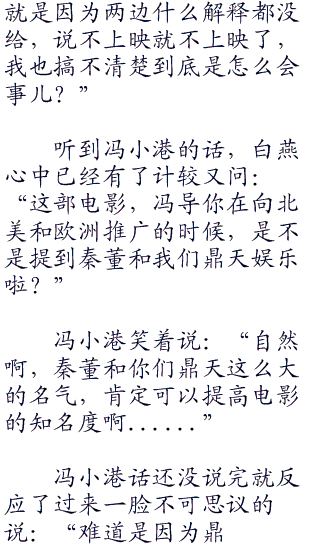 就是因为两边什么解释都没
给，说不上映就不上映了，
我也搞不清楚到底是怎么会
事儿？”
听到冯小港的话，白燕
心中已经有了计较又问：
“这部电影，冯导你在向北
美和欧洲推广的时候，是不
是提到秦董和我们鼎天娱乐
啦？”
冯小港笑着说：“自然
啊，秦董和你们鼎天这么大
的名气，肯定可以提高电影
的知名度啊......”
冯小港话还没说完就反
应了过来一脸不可思议的
说：“难道是因为鼎